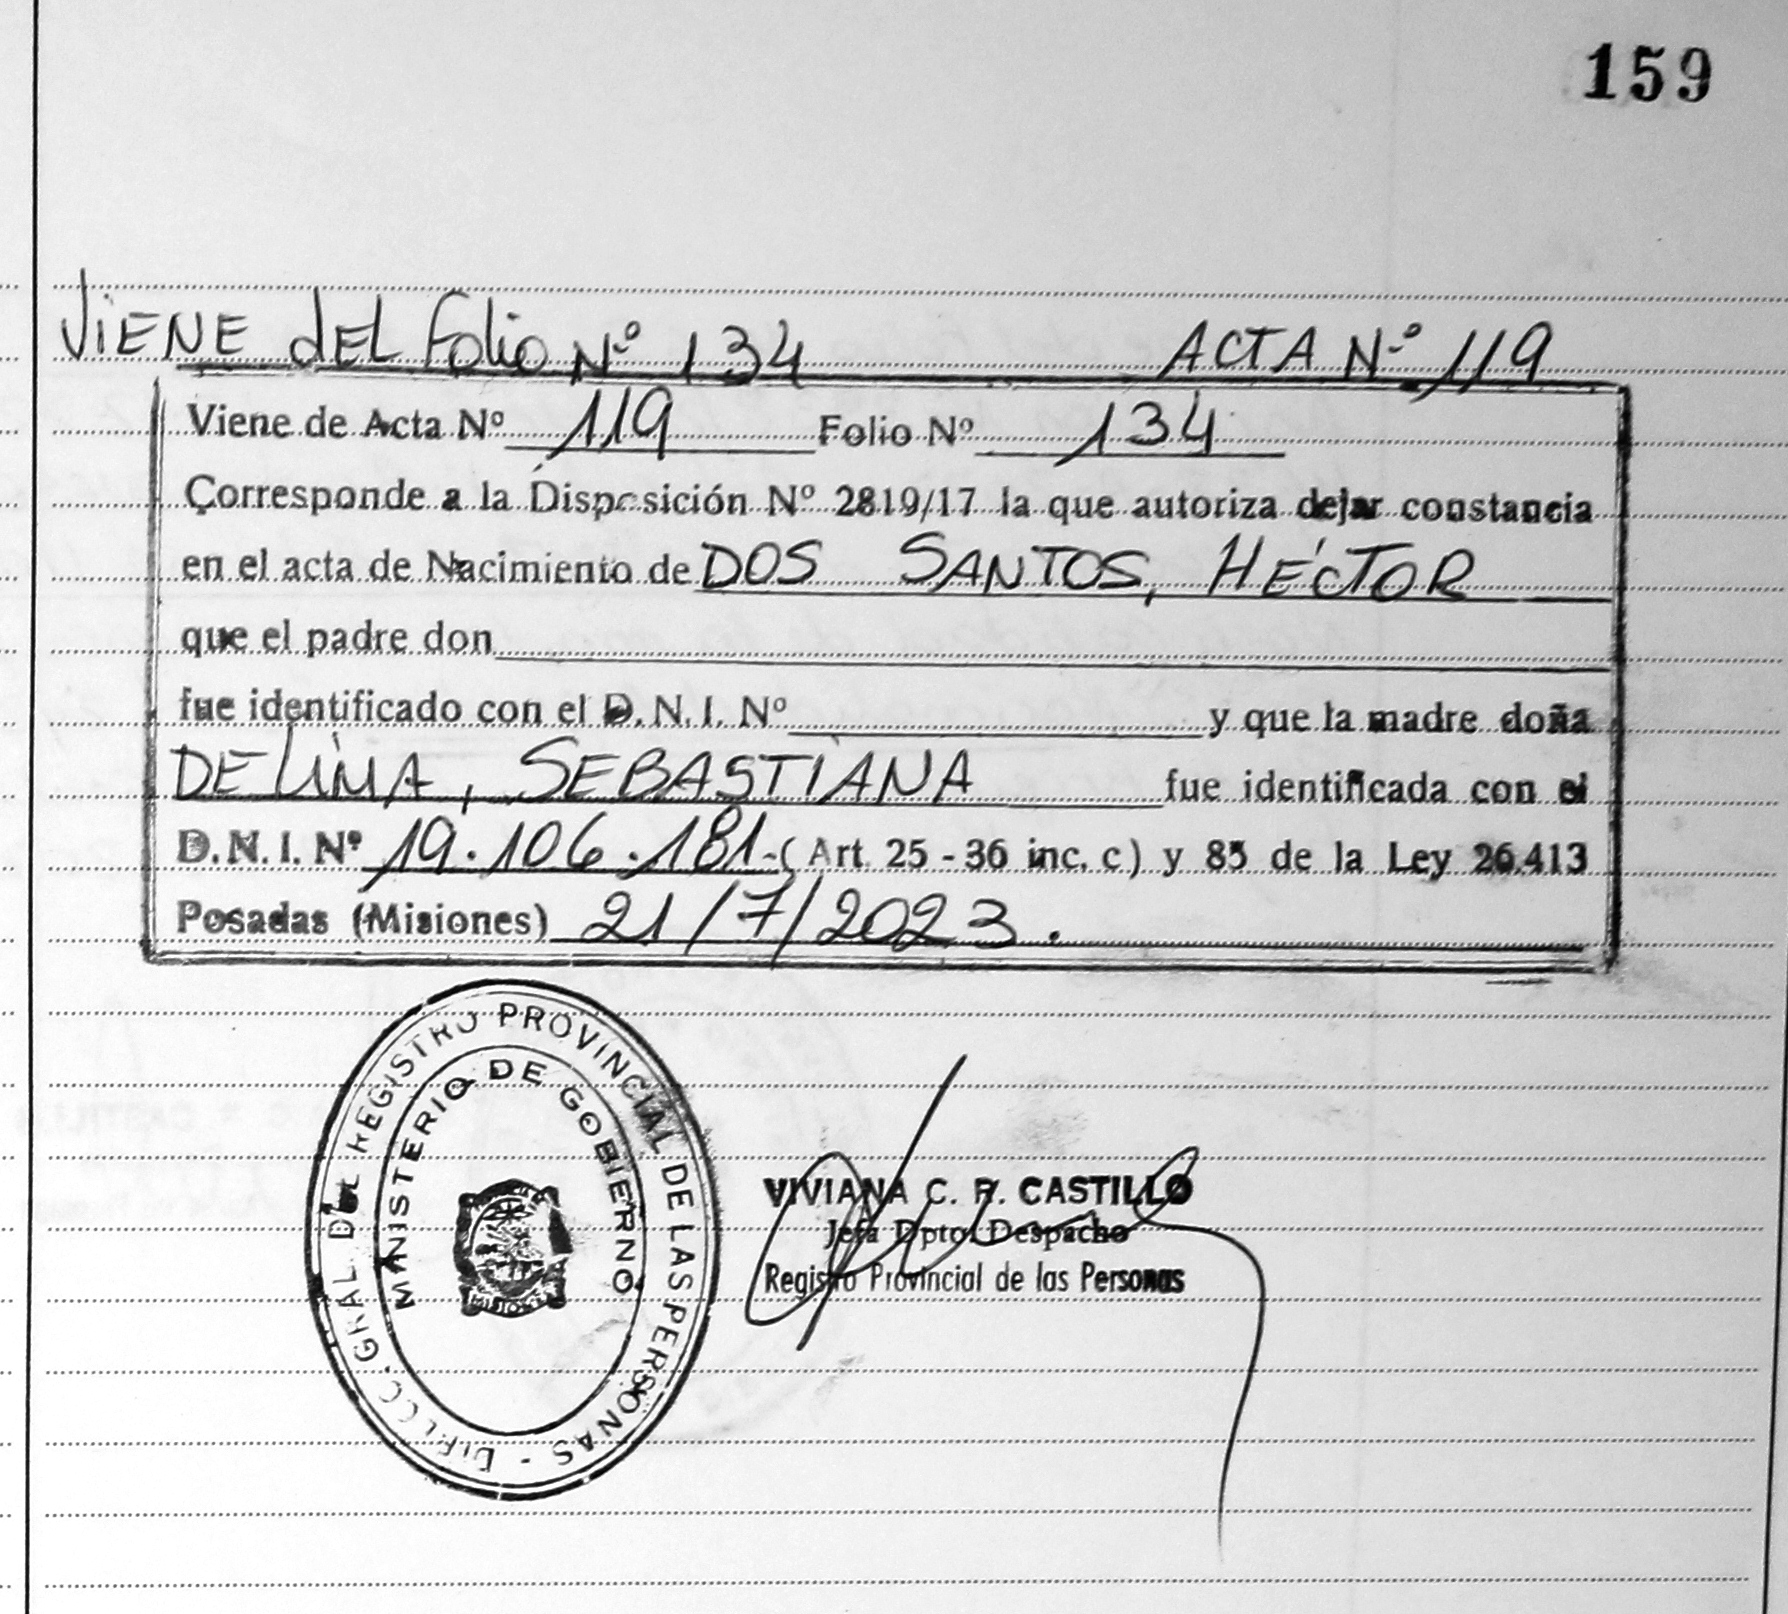 159
VIENE dEL Folio Nº 134 ACTA Nº 119
Viene de Acta Nº 119 Folio Nº 134
Corresponde a la Disposición Nº 2819/17 la que autoriza dejar constancia
en el acta de Nacimiento de DOS SANTOS, HÉCTOR
que el padre don
fue identificado con el D.N.I. Nº y que la madre doña
DE LIMA, SEBASTIANA fue identificada con el
D.N.I. Nº 19.106.181-(Art. 25 - 36 inc. c) y 85 de la Ley 26.413
Posadas (Misiones) 21/7/2023.
DIRECC. GRAL. DEL REGISTRO PROVINCIAL DE LAS PERSONAS -
MINISTERIO DE GOBIERNO
MISIONES
VIVIANA C. R. CASTILLO
Jefa Dpto. Despacho
Registro Provincial de las Personas